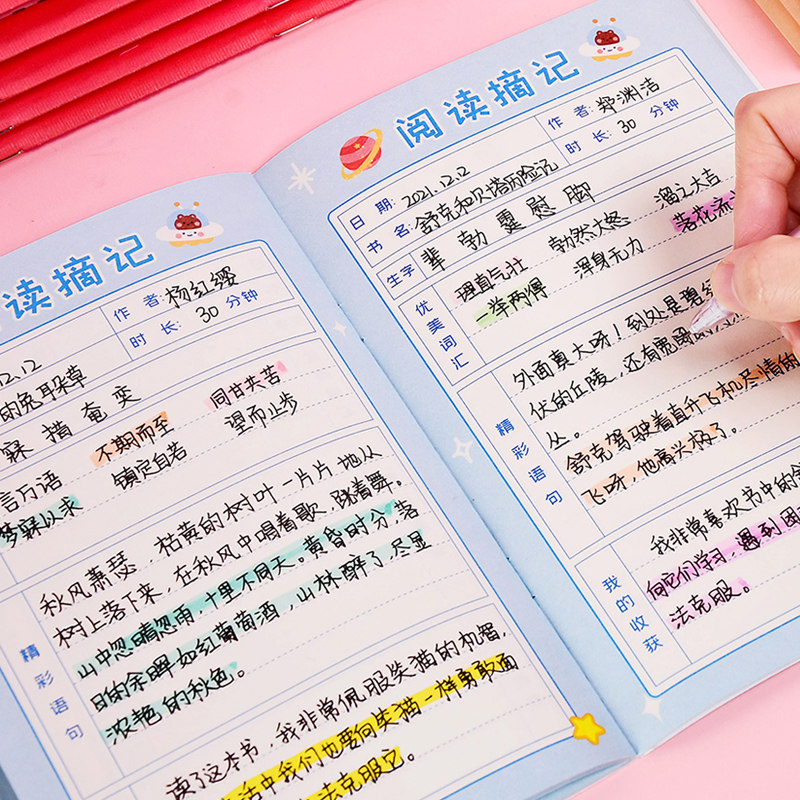 读摘记
作者: 杨红缨
时长: 30 分钟
12.12
的兔耳朵草
寐 措 奄 奕
言万语 不期而至 同甘共苦
梦寐以求 镇定自若 望而止步
精彩语句
秋风萧瑟，枯黄的树叶一片片地从
树上落下来，在秋风中唱着歌，跳着舞。
山中忽晴忽雨，十里不同天。黄昏时分，落
日的余晖如红葡萄酒，山林醉了，尽显
浓艳的秋色。
读了这本书，我非常佩服笑猫的机智，
活中我们也要向笑猫一样勇敢面
法克服它
阅读摘记
日期: 2021.12.12
作者: 郑渊洁
书名: 舒克和贝塔历险记
时长: 30 分钟
生字
辈 勃 霎 慰 脚
优美词汇
理直气壮 勃然大怒 溜之大吉
一举两得 浑身无力 落花流
精彩语句
外面真大呀！到处是碧
伏的丘陵，还有宽阔
丛。
舒克驾驶着直升飞机尽情的
飞呀，他高兴极了。
我的收获
我非常喜欢书中的
向它们学习，遇到困
法克服。